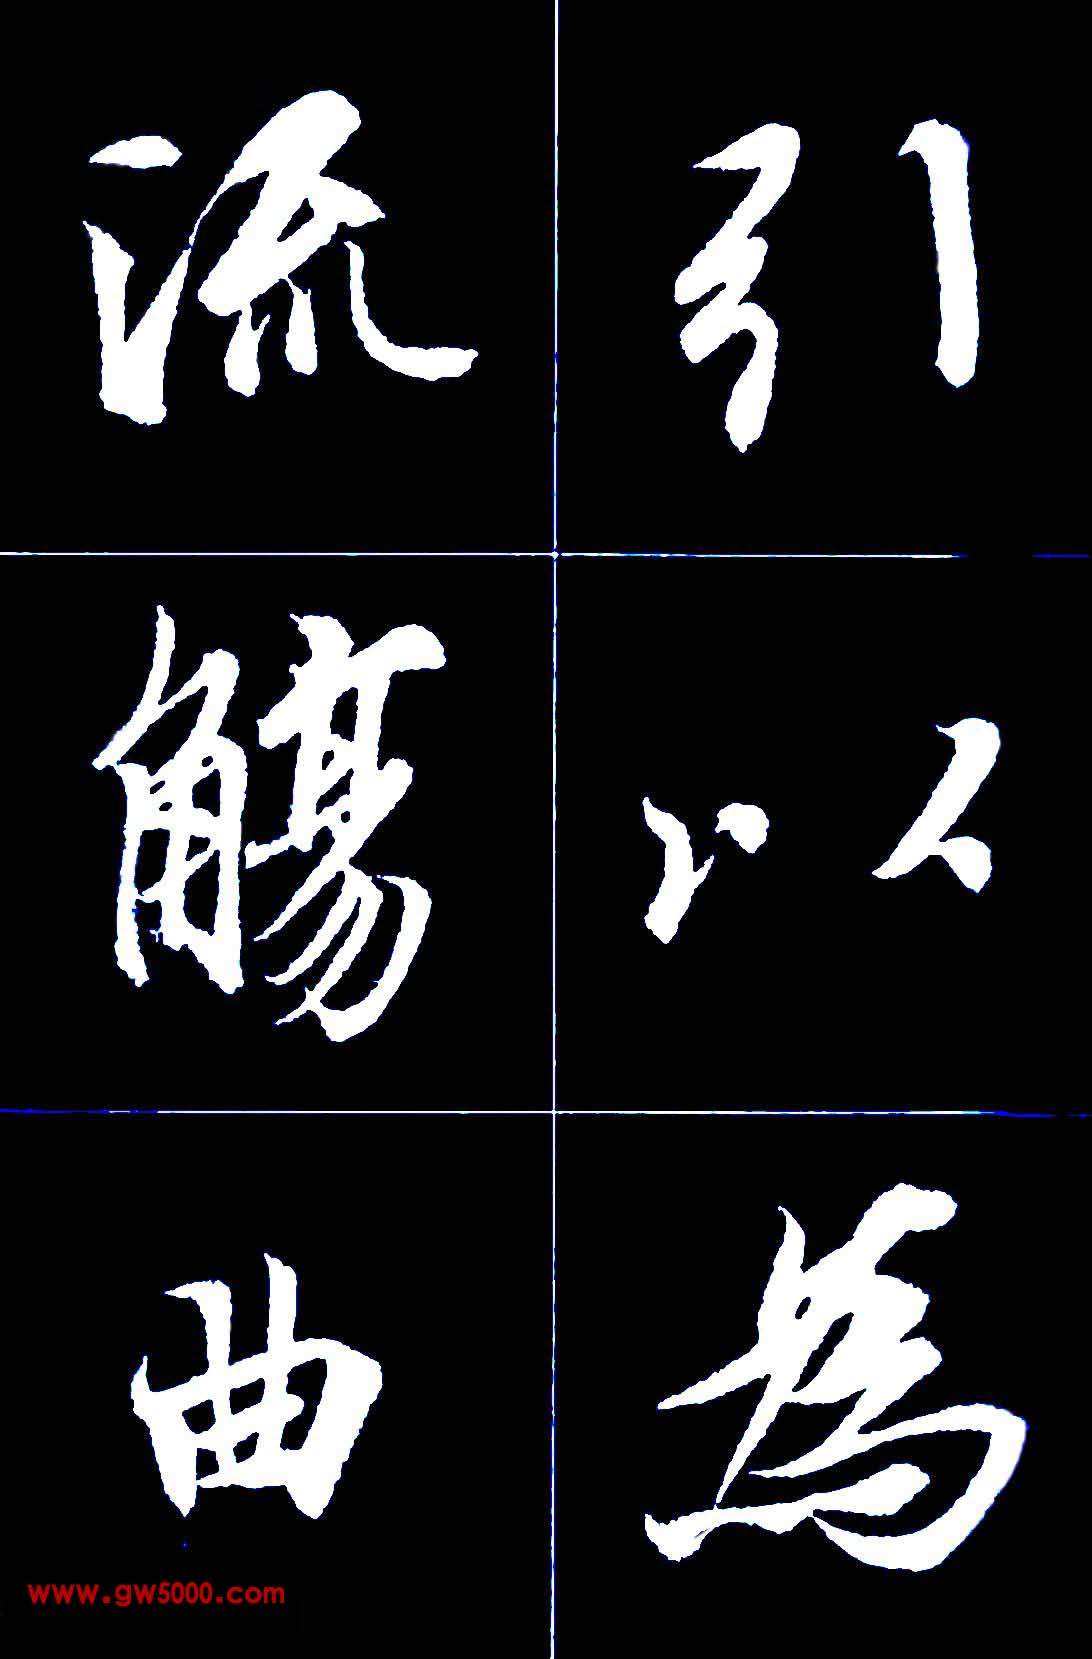 引以為
流觴曲
www.gw5000.com